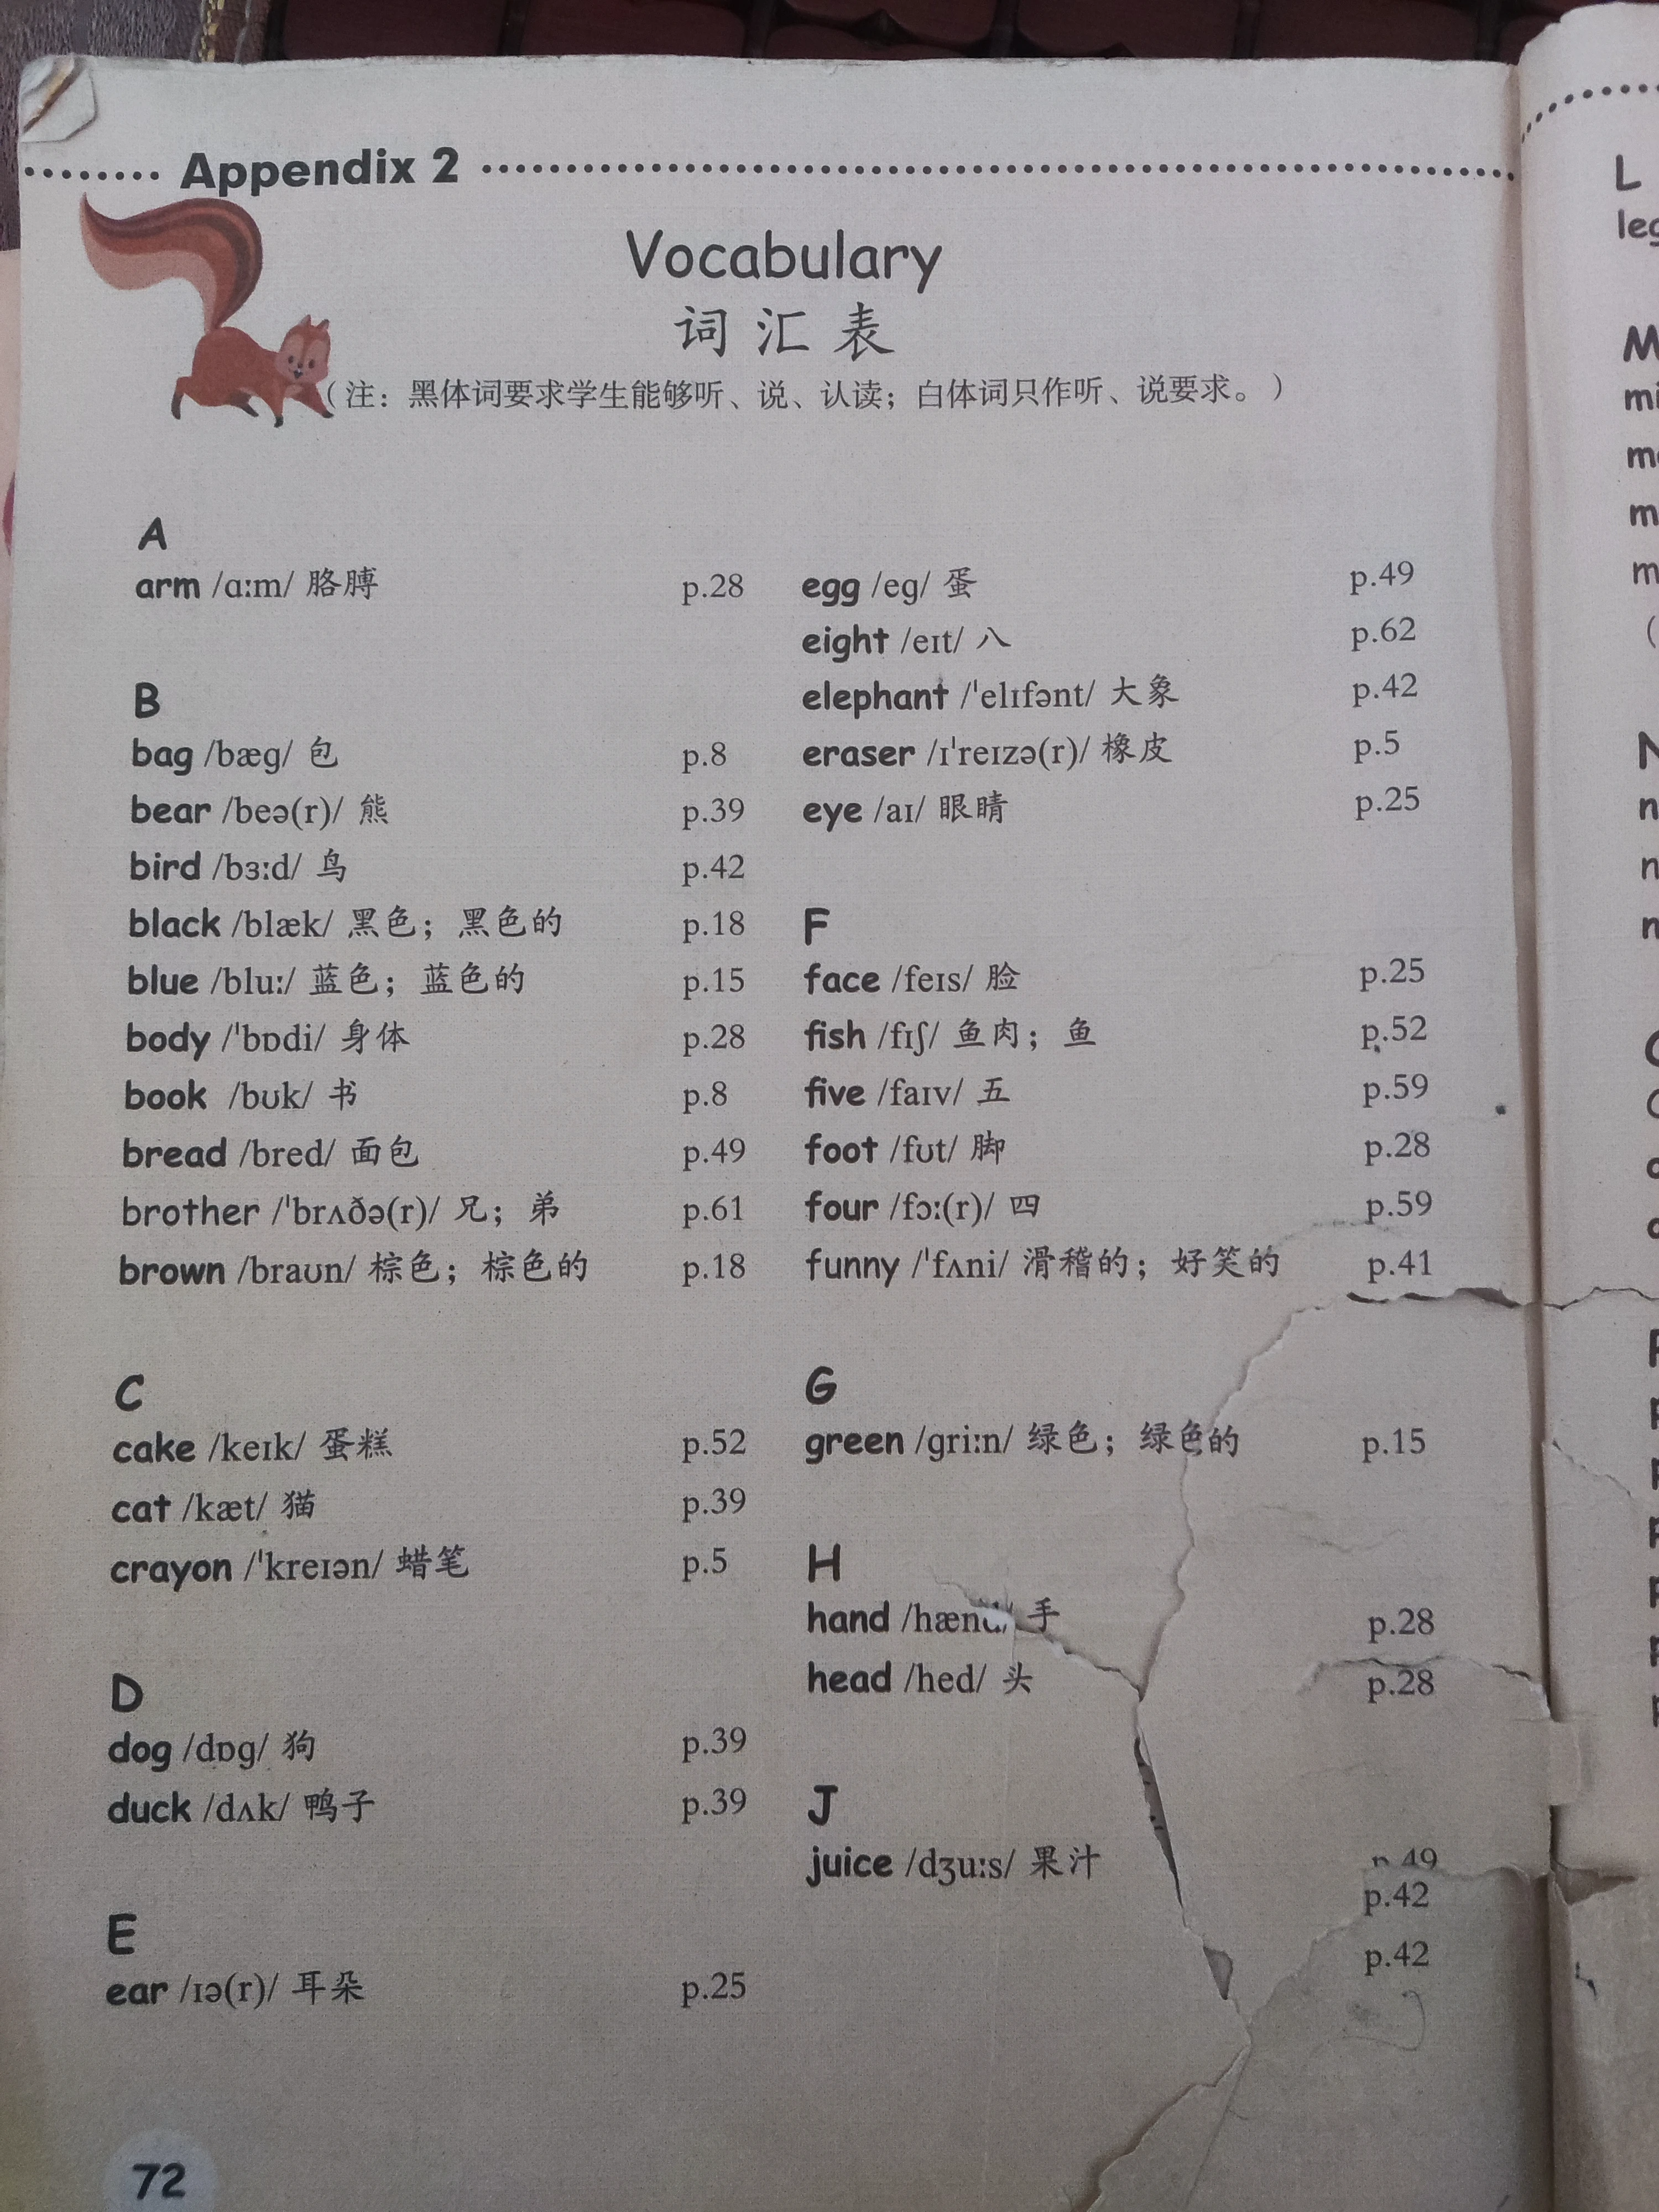 Appendix 2
Vocabulary
词汇表
（注：黑体词要求学生能够听、说、认读；白体词只作听、说要求。）
A
arm /ɑːm/ 胳膊 p.28
B
bag /bæɡ/ 包 p.8
bear /beə(r)/ 熊 p.39
bird /bɜːd/ 鸟 p.42
black /blæk/ 黑色；黑色的 p.18
blue /bluː/ 蓝色；蓝色的 p.15
body /ˈbɒdi/ 身体 p.28
book /bʊk/ 书 p.8
bread /bred/ 面包 p.49
brother /ˈbrʌðə(r)/ 兄；弟 p.61
brown /braʊn/ 棕色；棕色的 p.18
C
cake /keɪk/ 蛋糕 p.52
cat /kæt/ 猫 p.39
crayon /ˈkreɪən/ 蜡笔 p.5
D
dog /dɒɡ/ 狗 p.39
duck /dʌk/ 鸭子 p.39
E
ear /ɪə(r)/ 耳朵 p.25
egg /eɡ/ 蛋 p.49
eight /eɪt/ 八 p.62
elephant /ˈelɪfənt/ 大象 p.42
eraser /ɪˈreɪzə(r)/ 橡皮 p.5
eye /aɪ/ 眼睛 p.25
F
face /feɪs/ 脸 p.25
fish /fɪʃ/ 鱼肉；鱼 p.52
five /faɪv/ 五 p.59
foot /fʊt/ 脚 p.28
four /fɔː(r)/ 四 p.59
funny /ˈfʌni/ 滑稽的；好笑的 p.41
G
green /ɡriːn/ 绿色；绿色的 p.15
H
hand /hænd/ 手 p.28
head /hed/ 头 p.28
J
juice /dʒuːs/ 果汁 p.49
p.42
p.42
72
L